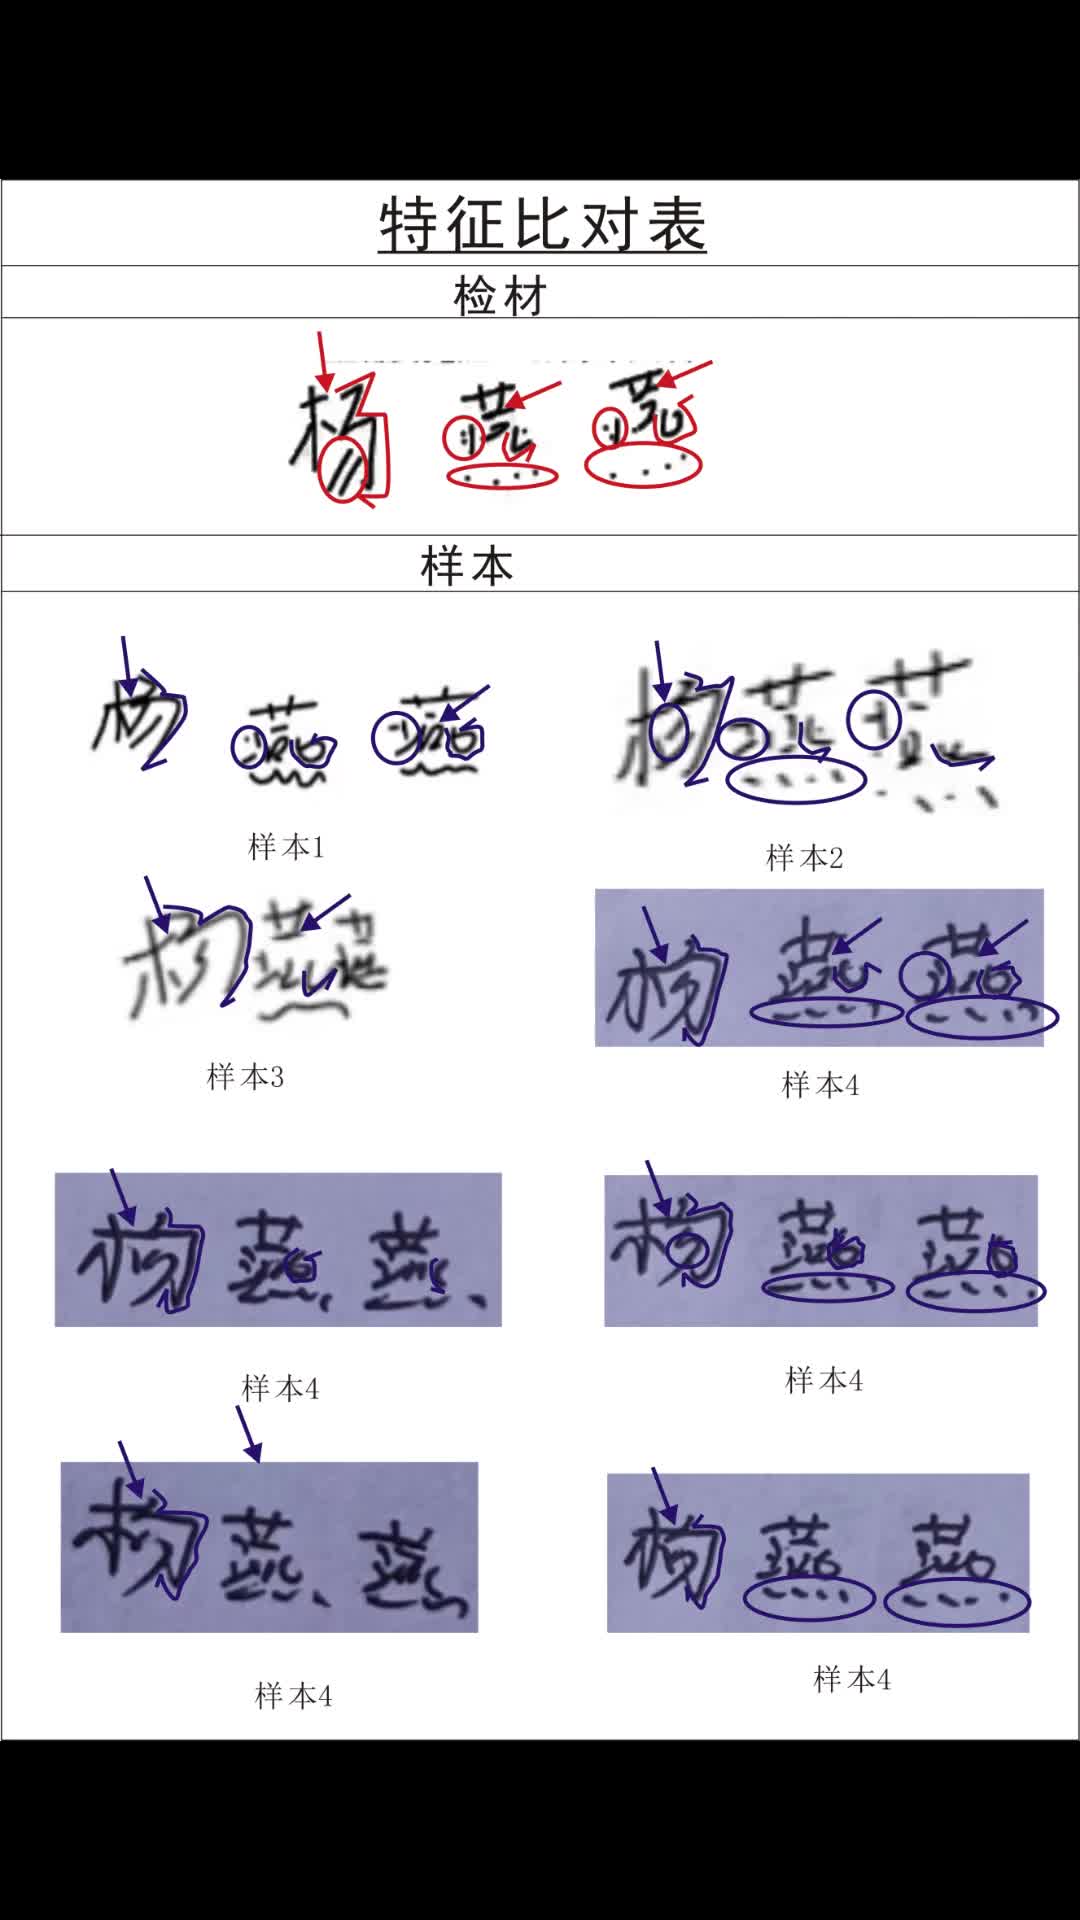 特征比对表
检材
杨燕燕
样本
杨燕燕 杨燕燕
样本1 样本2
杨燕燕 杨燕燕
样本3 样本4
杨燕燕 杨燕燕
样本4 样本4
杨燕燕 杨燕燕
样本4 样本4